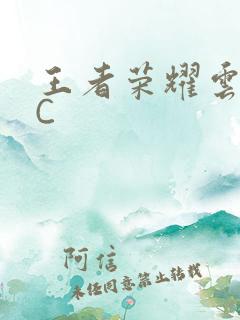 王者荣耀雲
C
阿信
未经同意禁止转载